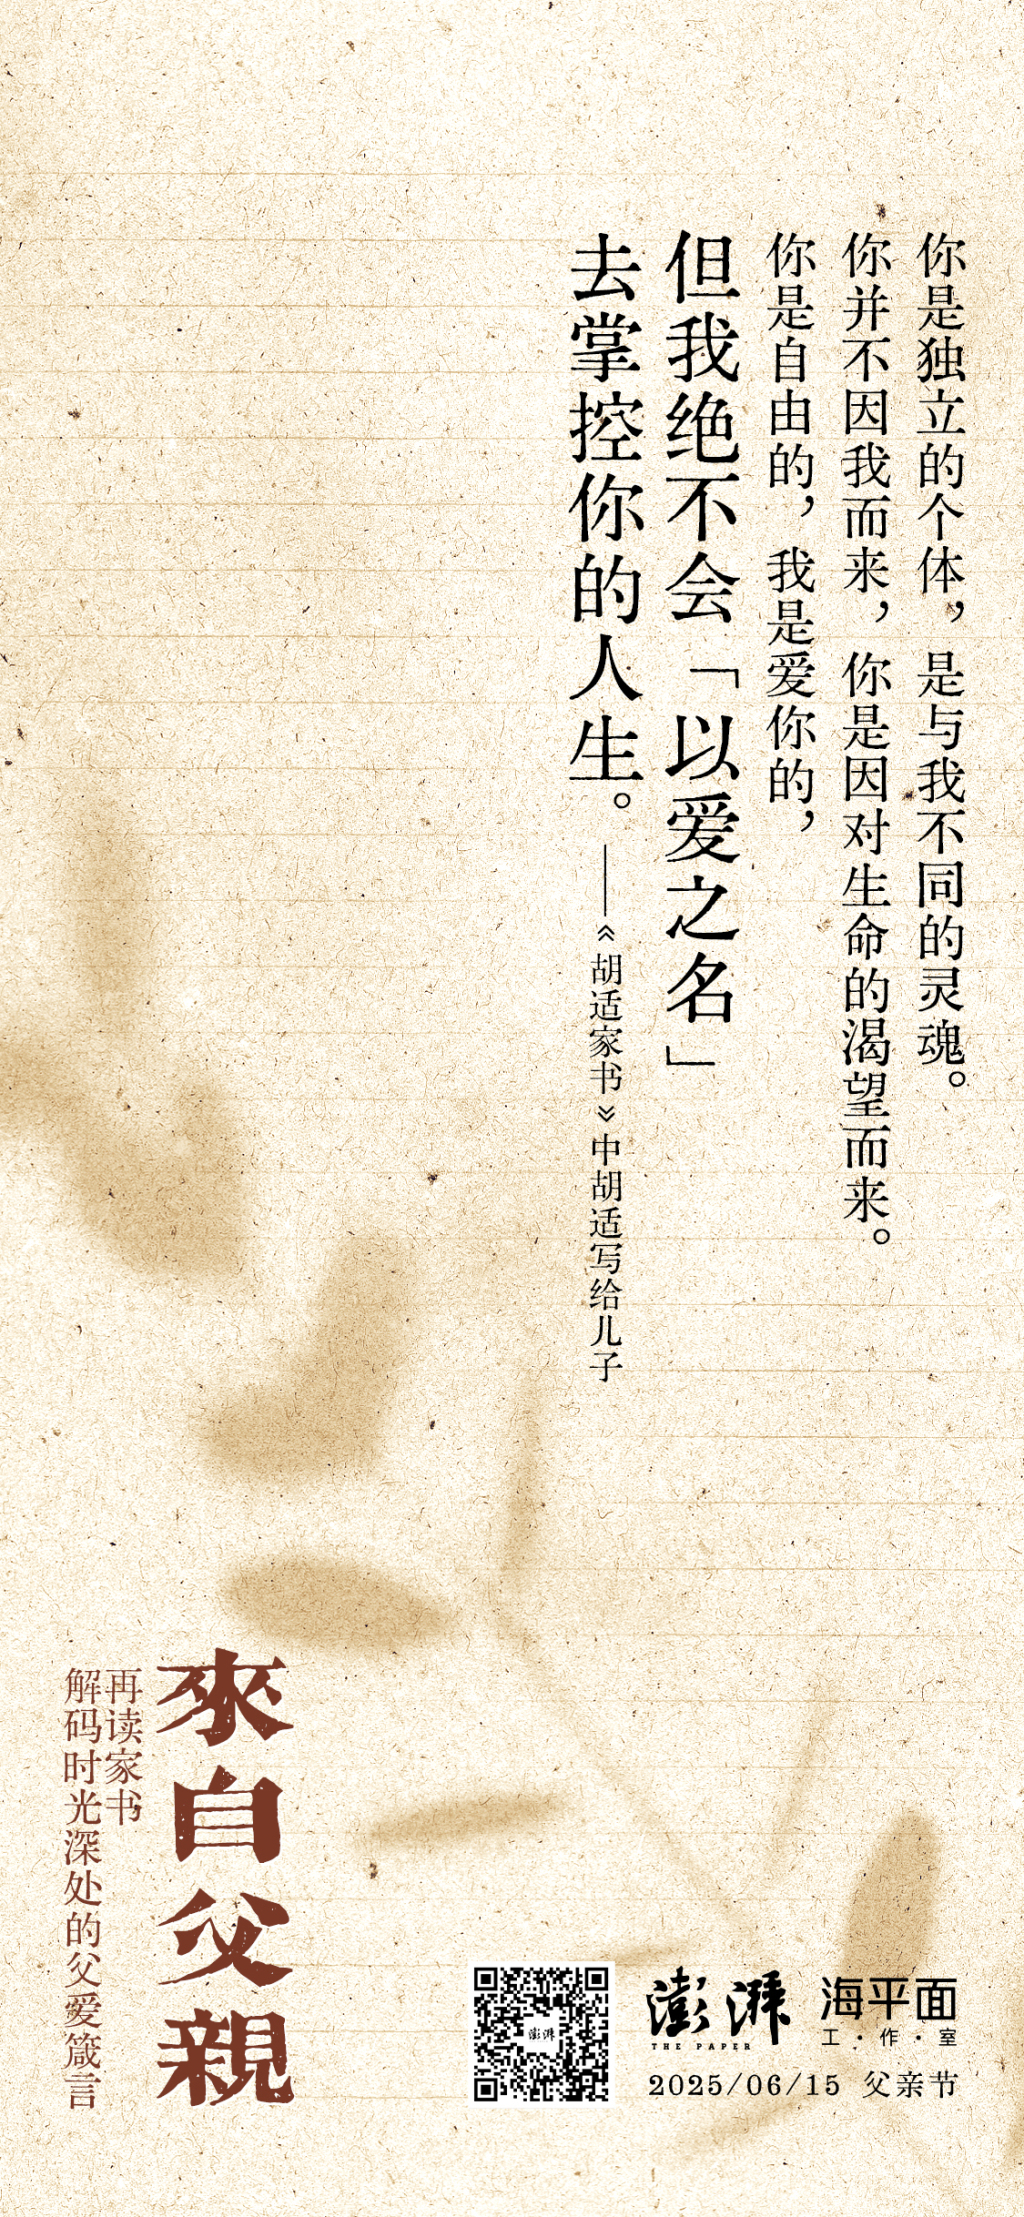 你是独立的个体，是与我不同的灵魂。
你并不因我而来，你是因对生命的渴望而来。
你是自由的，我是爱你的，
但我绝不会「以爱之名」
去掌控你的人生。——《胡适家书》中胡适写给儿子
來自父親
再读家书
解码时光深处的父爱箴言
澎湃
澎湃
THE PAPER
海平面
工·作·室
2025/06/15 父亲节